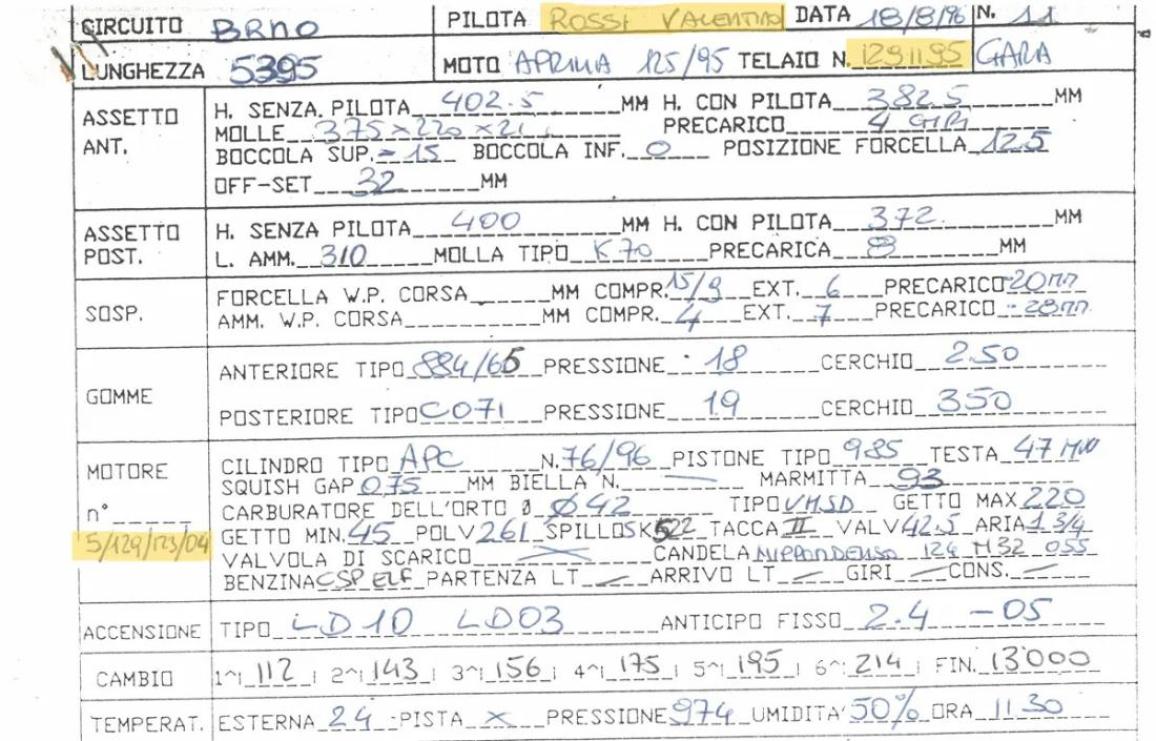 CIRCUITO BRNO PILOTA ROSSI VALENTINO DATA 18/8/96 N. 11
LUNGHEZZA 5395 MOTO APRILIA 125/95 TELAIO N. 1291195 GARA
ASSETTO ANT.
H. SENZA PILOTA 402.5 MM H. CON PILOTA 382.5 MM
MOLLE 375x220x21 PRECARICO 4 GIRI
BOCCOLA SUP. -15 BOCCOLA INF. 0 POSIZIONE FORCELLA 12.5
OFF-SET 32 MM
ASSETTO POST.
H. SENZA PILOTA 400 MM H. CON PILOTA 372. MM
L. AMM. 310 MOLLA TIPO K70 PRECARICA 8 MM
SOSP.
FORCELLA W.P. CORSA MM COMPR. 15/9 EXT. 6 PRECARICO 20mm
AMM. W.P. CORSA MM COMPR. 4 EXT. 7 PRECARICO 28mm
GOMME
ANTERIORE TIPO 884/65 PRESSIONE 18 CERCHIO 2.50
POSTERIORE TIPO C071 PRESSIONE 19 CERCHIO 350
MOTORE
n°
5/129/123/04
CILINDRO TIPO APC N. 76/96 PISTONE TIPO 985 TESTA 47
SQUISH GAP 075 MM BIELLA N. MARMITTA 93
CARBURATORE DELL'ORTO Ø Ø42 TIPO VHSD GETTO MAX 220
GETTO MIN. 45 POLV 261 SPILLO SK522 TACCA II VALV 42.5 ARIA 1 3/4
VALVOLA DI SCARICO CANDELA NIPPONDENSO 124 M32 055
BENZINA CSP ELF PARTENZA LT ARRIVO LT GIRI CONS.
ACCENSIONE TIPO LD10 LD03 ANTICIPO FISSO 2.4 -05
CAMBIO 1^ 112 2^ 143 3^ 156 4^ 175 5^ 195 6^ 214 FIN. 13000
TEMPERAT. ESTERNA 24 PISTA X PRESSIONE 974 UMIDITA' 50% ORA 11.30